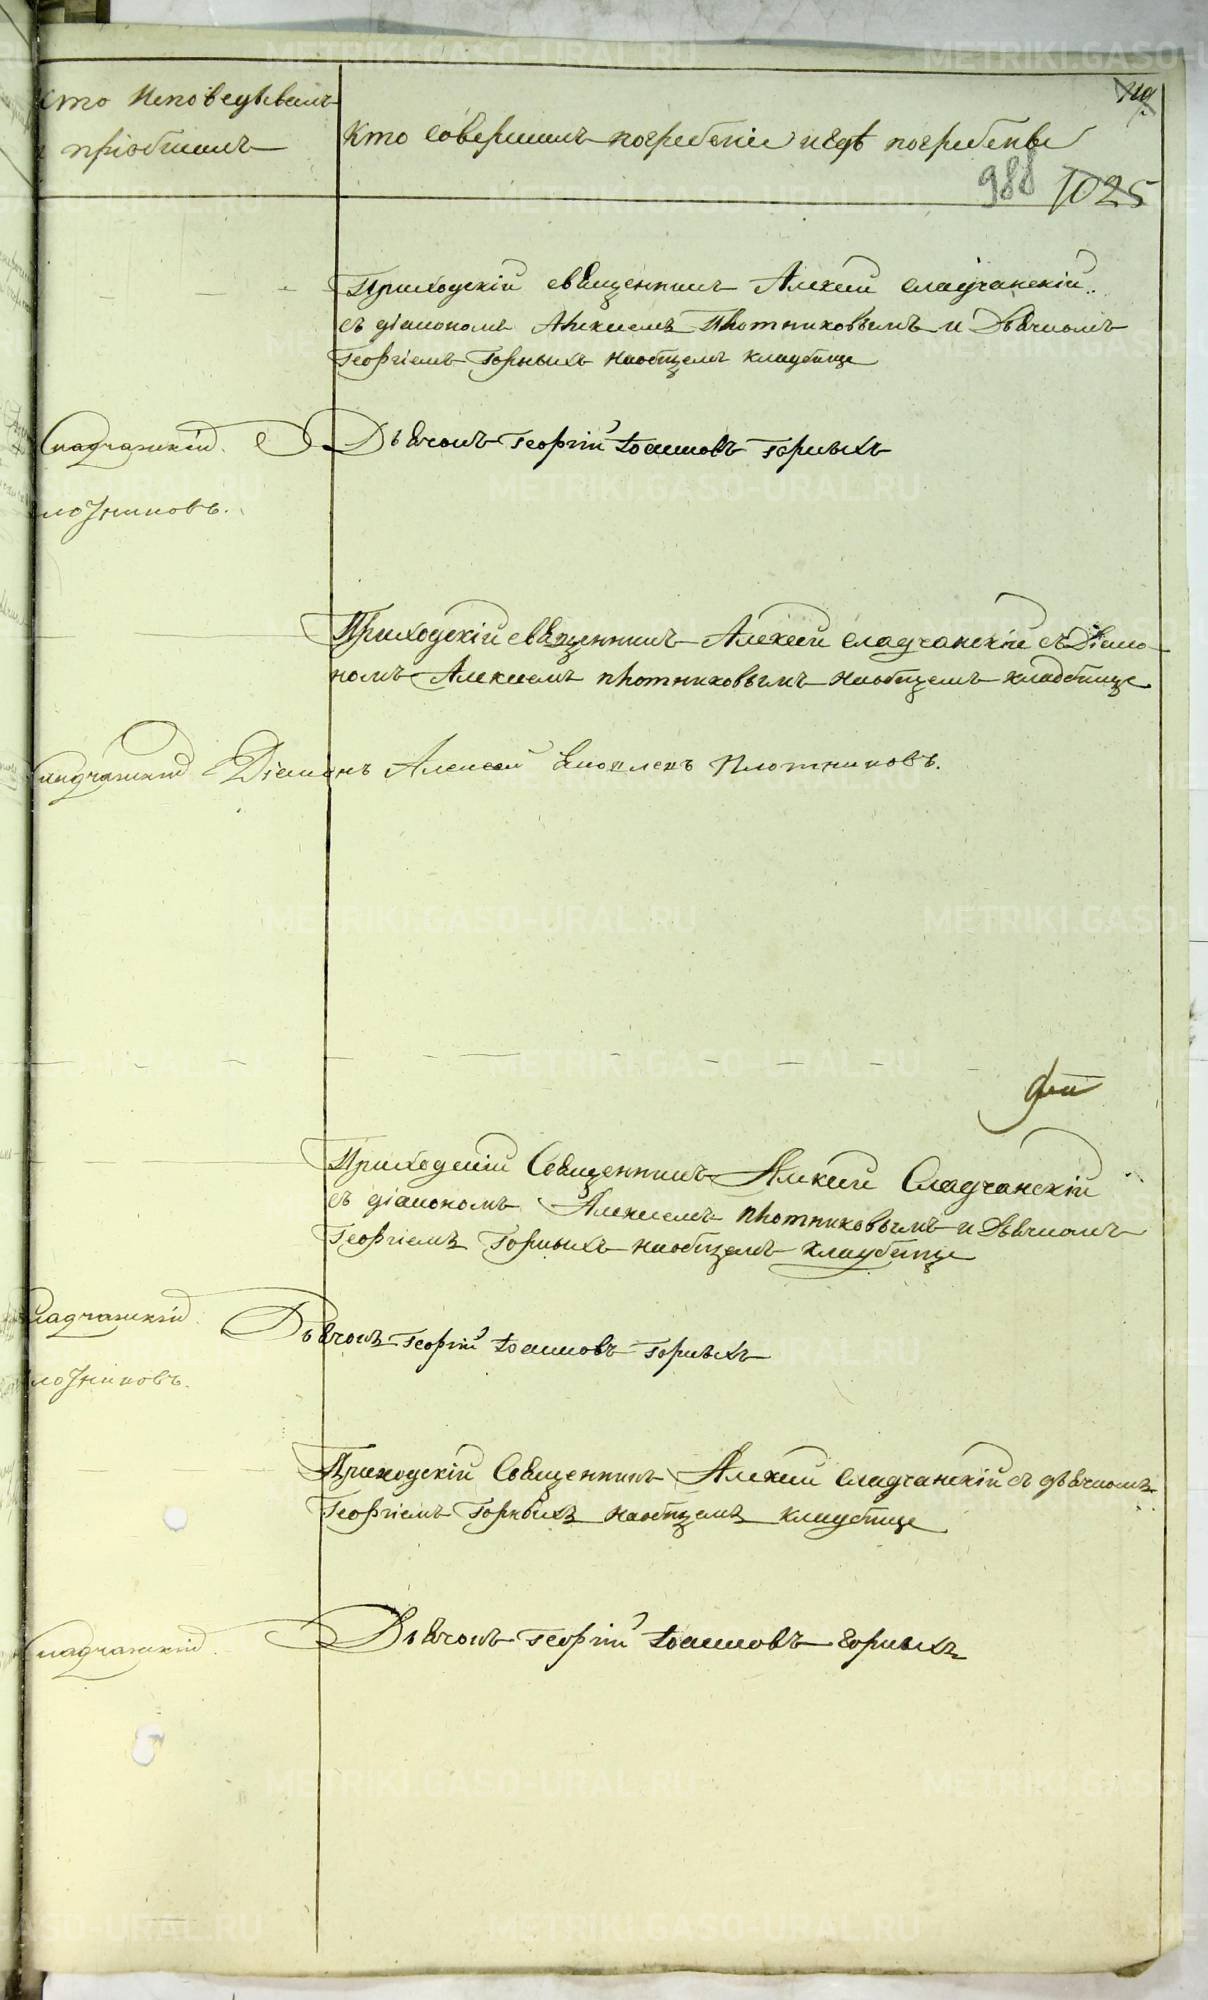 кто исповедывалъ
и пріобщалъ
Кто совершалъ погребеніе и гдѣ погребены
110
988 1025
Приходскій священникъ Алексій Сладчанскій
съ діакономъ Алексіемъ Плотниковымъ и Дьячкомъ
Георгіемъ Горныхъ на общемъ кладбище
Сладчанскій. Дьячокъ Георгій Іоанновъ Горныхъ
лотниковъ.
Приходскій священникъ Алексій Сладчанскій съ Діако
номъ Алексіемъ Плотниковымъ на общемъ кладбище
Сладчанскій Діаконъ Алексей Яковлевъ Плотниковъ.
Приходскій Священникъ Алексій Сладчанскій
съ діакономъ Алексіемъ Плотниковымъ и Дьячкомъ
Георгіемъ Горныхъ на общемъ кладбище
Сладчанскій. Дьячокъ Георгій Іоанновъ Горныхъ
лотниковъ.
Приходскій Священникъ Алексій Сладчанскій съ дьячкомъ
Георгіемъ Горныхъ на общемъ кладбище
Сладчанскій. Дьячокъ Георгій Іоанновъ Горныхъ
METRIKI.GASO-URAL.RU